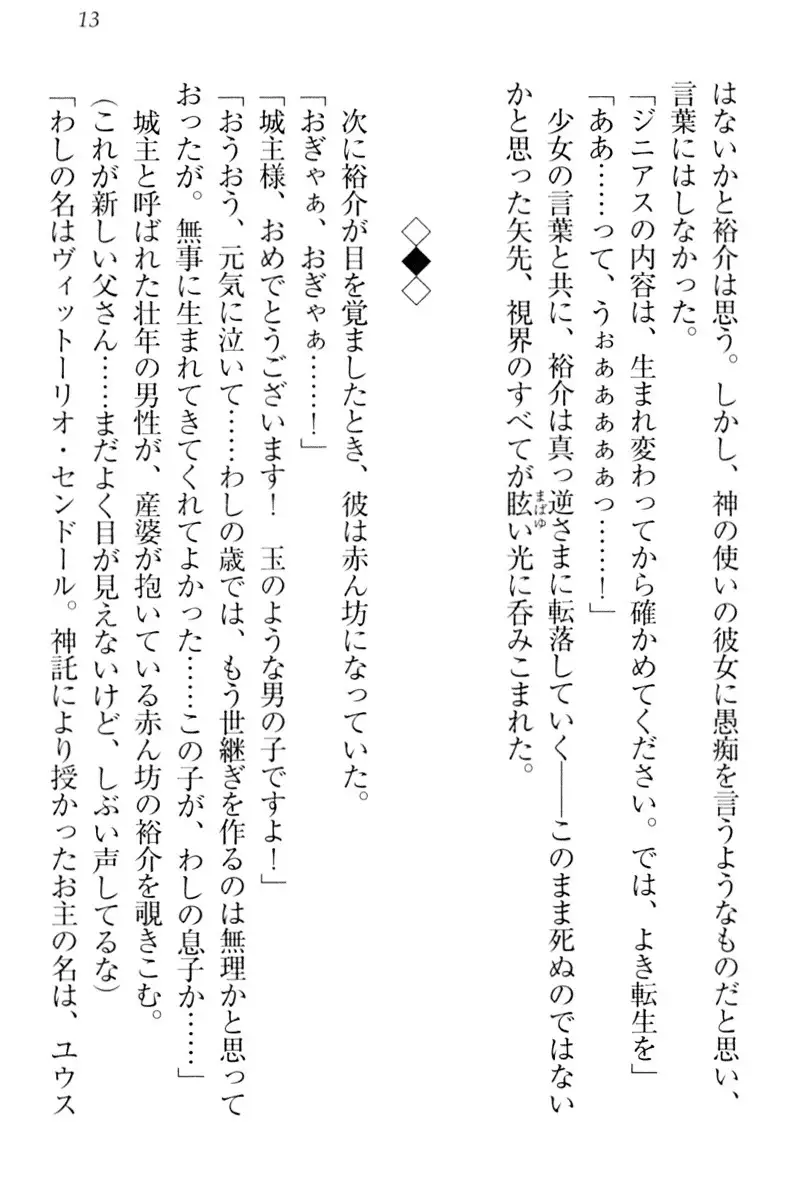 13
はないかと裕介は思う。しかし、神の使いの彼女に愚痴を言うようなものだと思い、
言葉にはしなかった。
「ジニアスの内容は、生まれ変わってから確かめてください。では、よき転生を」
「ああ……って、うぉぁぁぁぁぁっ……！」
　少女の言葉と共に、裕介は真っ逆さまに転落していく――このまま死ぬのではない
かと思った矢先、視界のすべてが眩い光に呑みこまれた。
まばゆ
◇◆◇
　次に裕介が目を覚ましたとき、彼は赤ん坊になっていた。
「おぎゃぁ、おぎゃぁ……！」
「城主様、おめでとうございます！　玉のような男の子ですよ！」
「おうおう、元気に泣いて……わしの歳では、もう世継ぎを作るのは無理かと思って
おったが。無事に生まれてきてくれてよかった……この子が、わしの息子か……」
　城主と呼ばれた壮年の男性が、産婆が抱いている赤ん坊の裕介を覗きこむ。
(これが新しい父さん……まだよく目が見えないけど、しぶい声してるな)
「わしの名はヴィットーリオ・センドール。神託により授かったお主の名は、ユウス